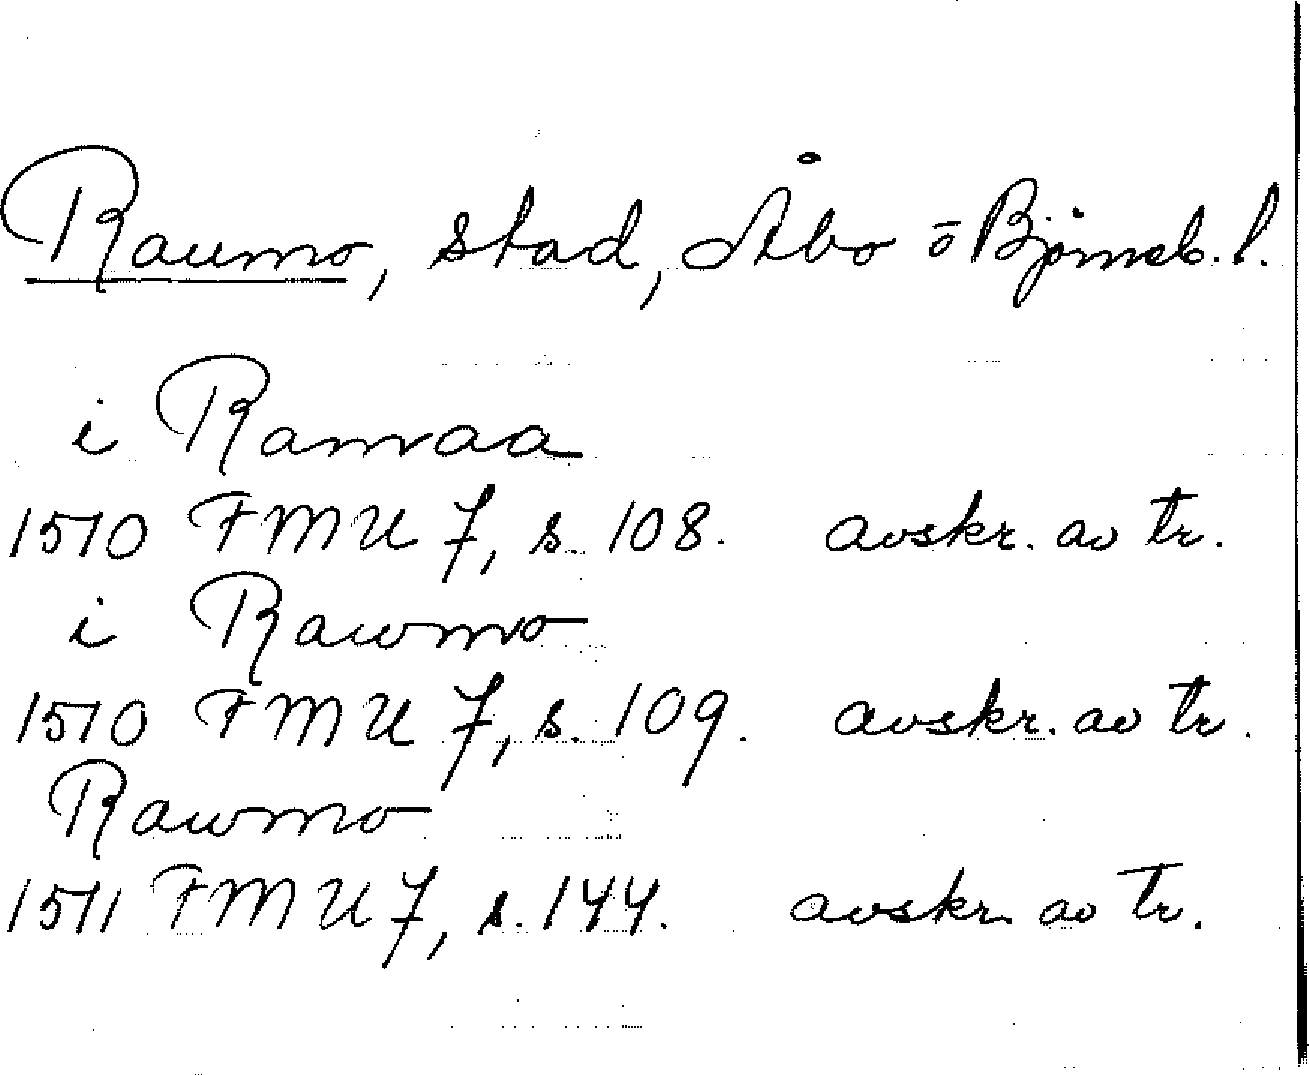 Raumo, stad, Åbo o Björneb. l.
i Ramaa
1510 FMU 7, s. 108. avskr. av tr.
i Rawmo
1510 FMU 7, s. 109. avskr. av tr.
Rawmo
1511 FMU 7, s. 144. avskr. av tr.